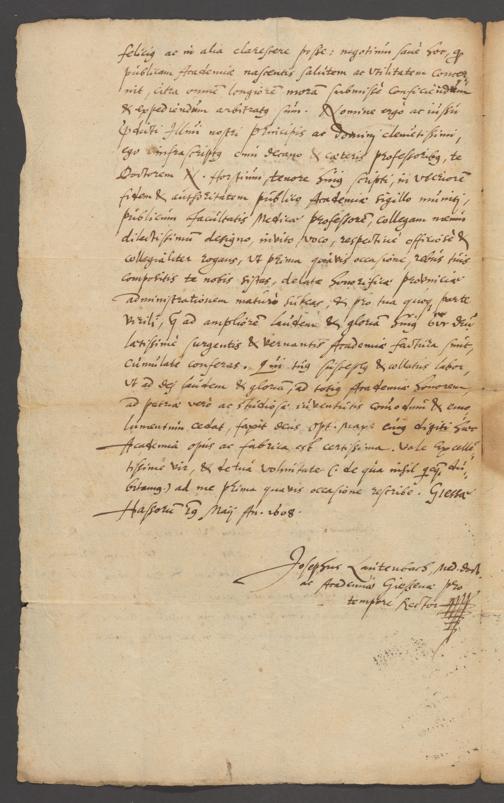 felicis ac in alia clarescere posse: negotium sanè hoc, qd
publicam Academiæ nascentis salutem ac utilitatem concer
nit, citra omnem longiorē moram submissè conficiendum
& expediendum arbitratus sum. Nomine ergo ac iussu
Illmi nostri Principis ac Domini clementissimi,
ego infrascriptus cum decano & cæteris Professoribus, te
Doctorem N. Horstium, tenore huius scripti, in uberiorem
fidem & authoritatem publico Academiæ sigillo muniti,
publicum facultatis Medicæ Professorem collegam meum
dilectissimum designo, invito, voco, respectiuè officiosè &
collegialiter rogans, ut prima quavis occasione, rebus tuis
compositis te nobis sistas, delatæ honorificæ provinciæ
administrationem maturè subeas, & pro tua quoq; parte
virili, ad ampliorē laudem & gloriam huius
latissimè surgentis & vernantis Academiæ
cumulatè conferas. Qui tuus susceptus & collatus labor,
ut ad dei laudem & gloriam, ad totius Academiæ honorem,
ad patriæ verò ac studiosæ iuventutis comodum & emo
lumentum cedat, faxit deus opt. Max: cuius digiti hæc
Academia opus ac fabrica est certissima. Vale Excellē
tissime vir, & de tua voluntate (: de qua nihil du
bitamus:) ad me prima quavis occasione rescribe. Giessæ
Hassorum 29 Maij An. 1608.
Josephus Lautenbach, Med. Doct.
ac Academiæ Giessenæ pro
tempore Rector